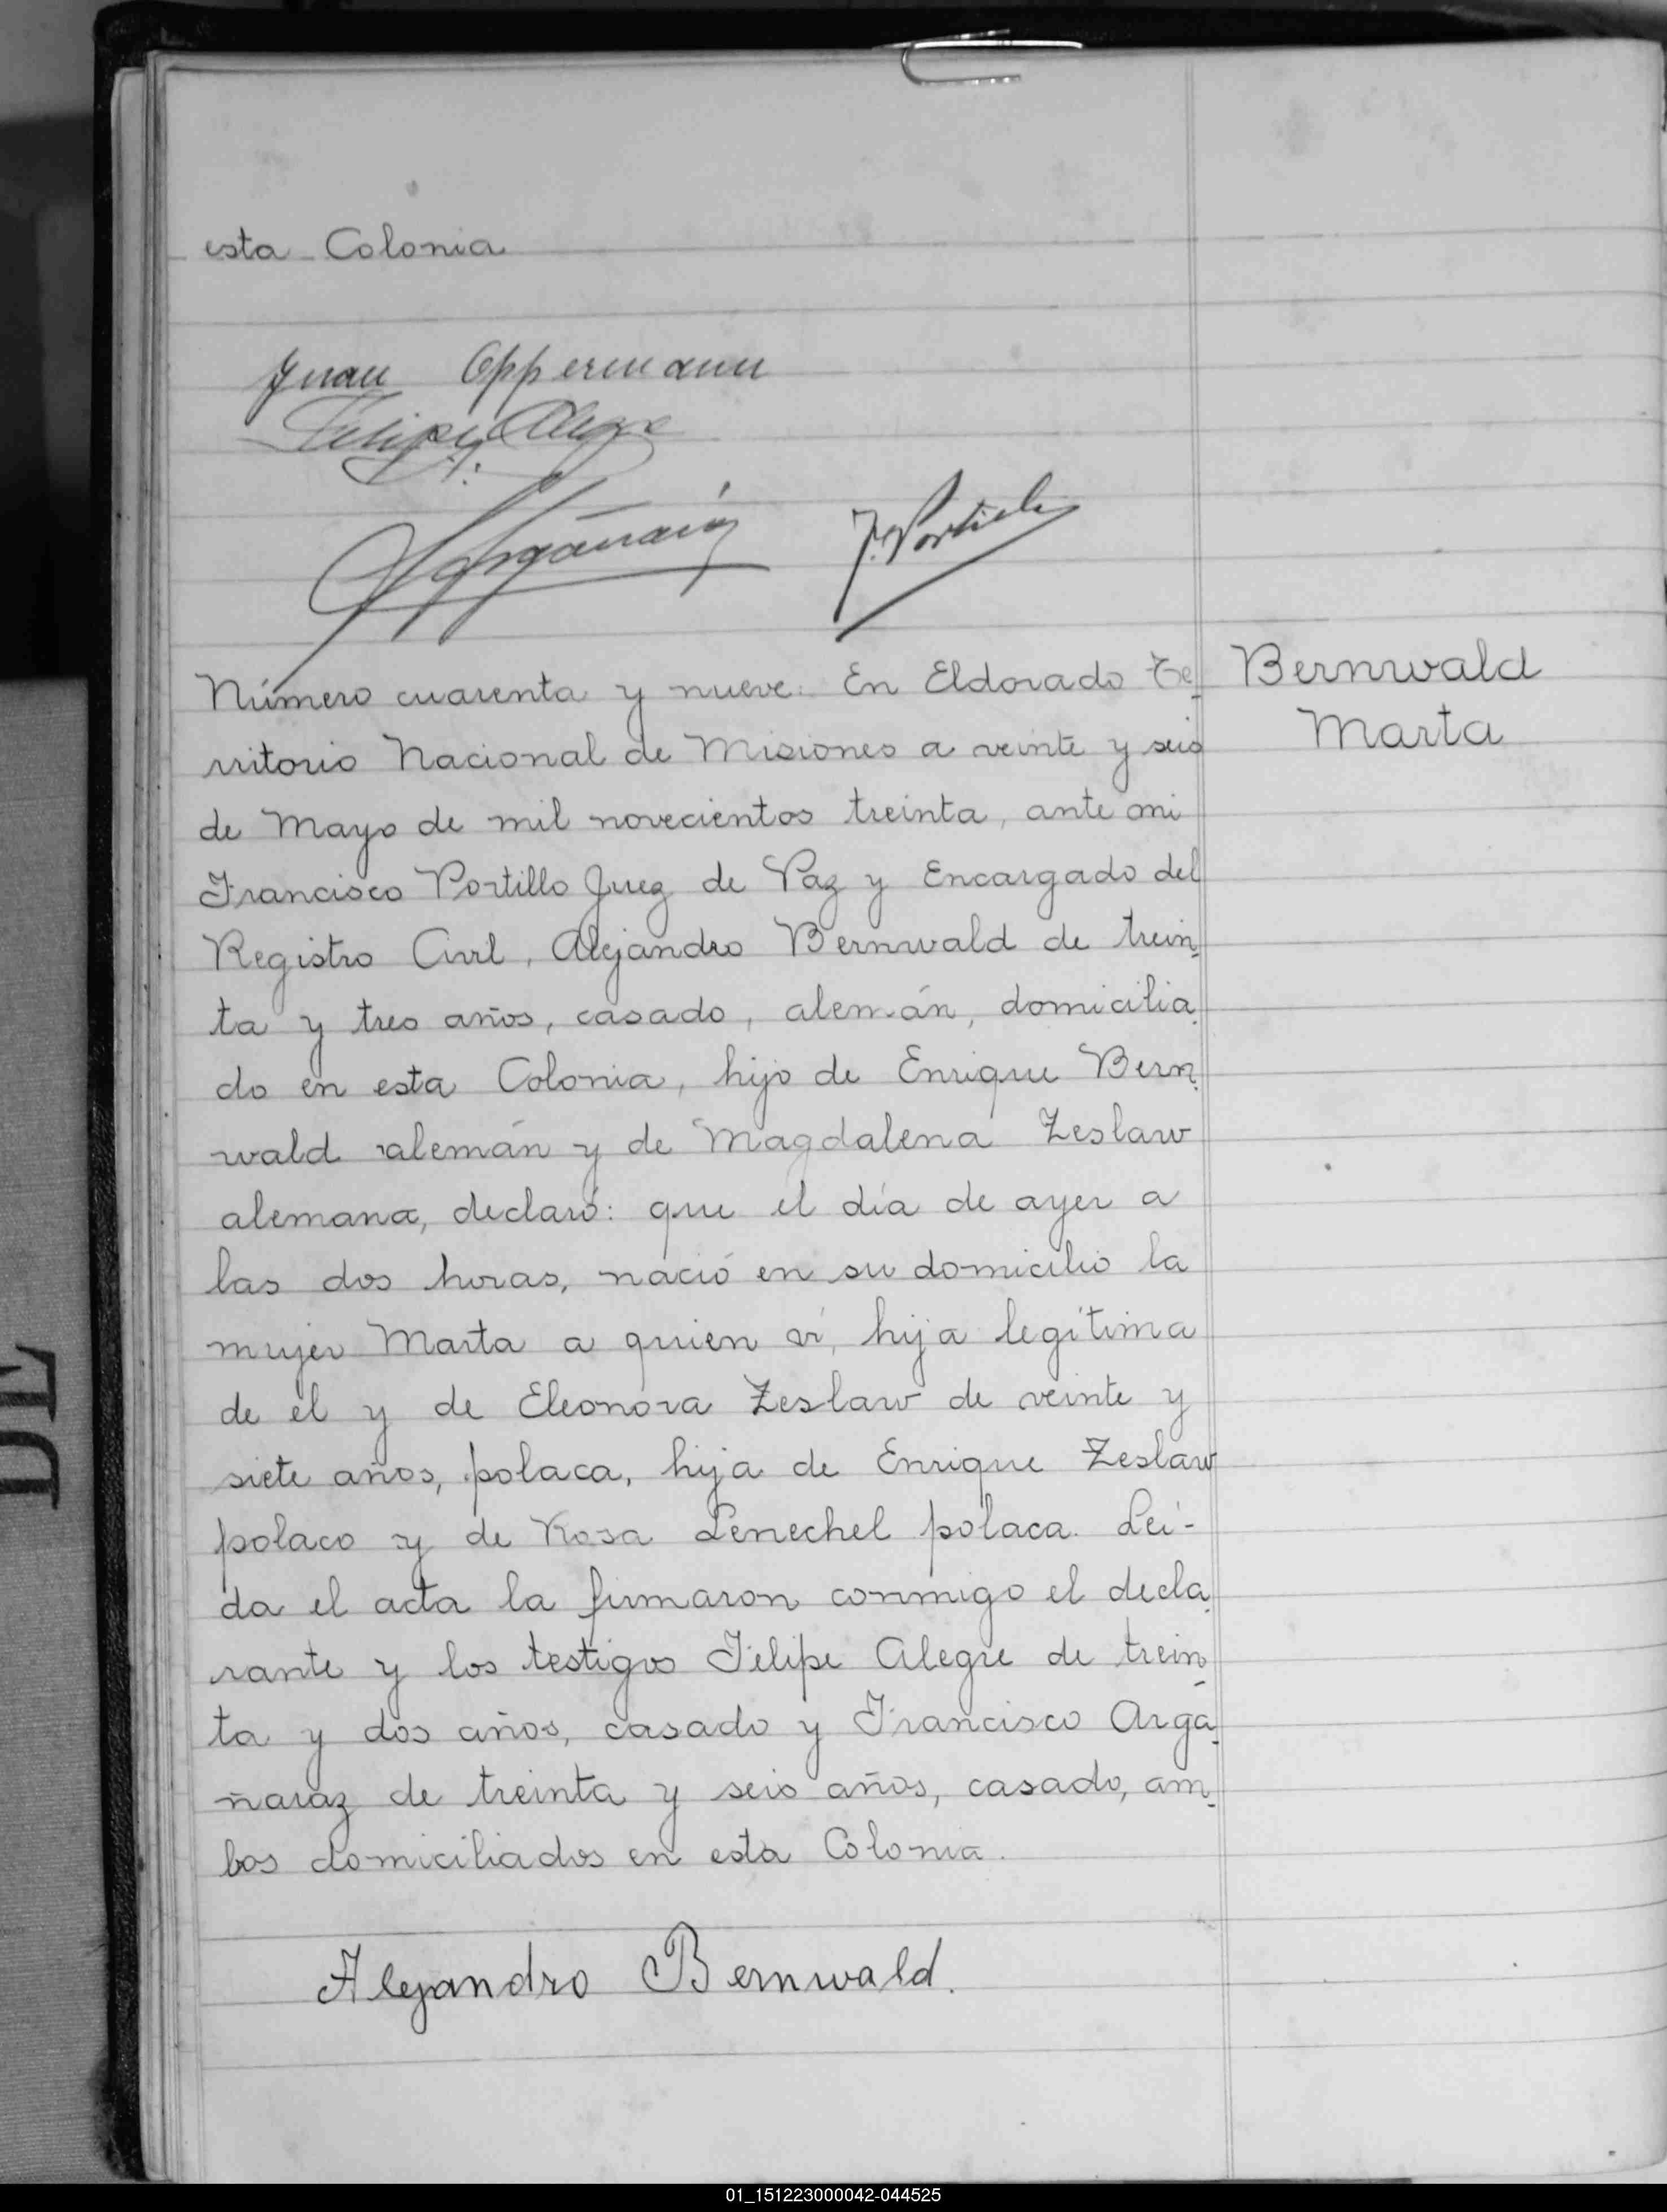 esta Colonia
Juan Oppermann
Felipe Alegre
F. Argañaráz
F. Portillo
Bernwald
Marta
Número cuarenta y nueve. En Eldorado Te
rritorio Nacional de Misiones a veinte y seis
de Mayo de mil novecientos treinta, ante mi
Francisco Portillo Juez de Paz y Encargado del
Registro Civil, Alejandro Bernwald de trein
ta y tres años, casado, alemán, domicilia
do en esta Colonia, hijo de Enrique Bern
wald alemán y de Magdalena Zeslaw
alemana, declaró: que el día de ayer a
las dos horas, nació en su domicilio la
mujer Marta a quien ví, hija legítima
de el y de Eleonora Zeslaw de veinte y
siete años, polaca, hija de Enrique Zeslaw
polaco y de Rosa Lenechel polaca. Leí-
da el acta la firmaron conmigo el decla
rante y los testigos Felipe Alegre de trein
ta y dos años, casado y Francisco Arga
ñaraz de treinta y seis años, casado, am
bos domiciliados en esta Colonia.
Alejandro Bernwald.
DE
01_151223000042-044525